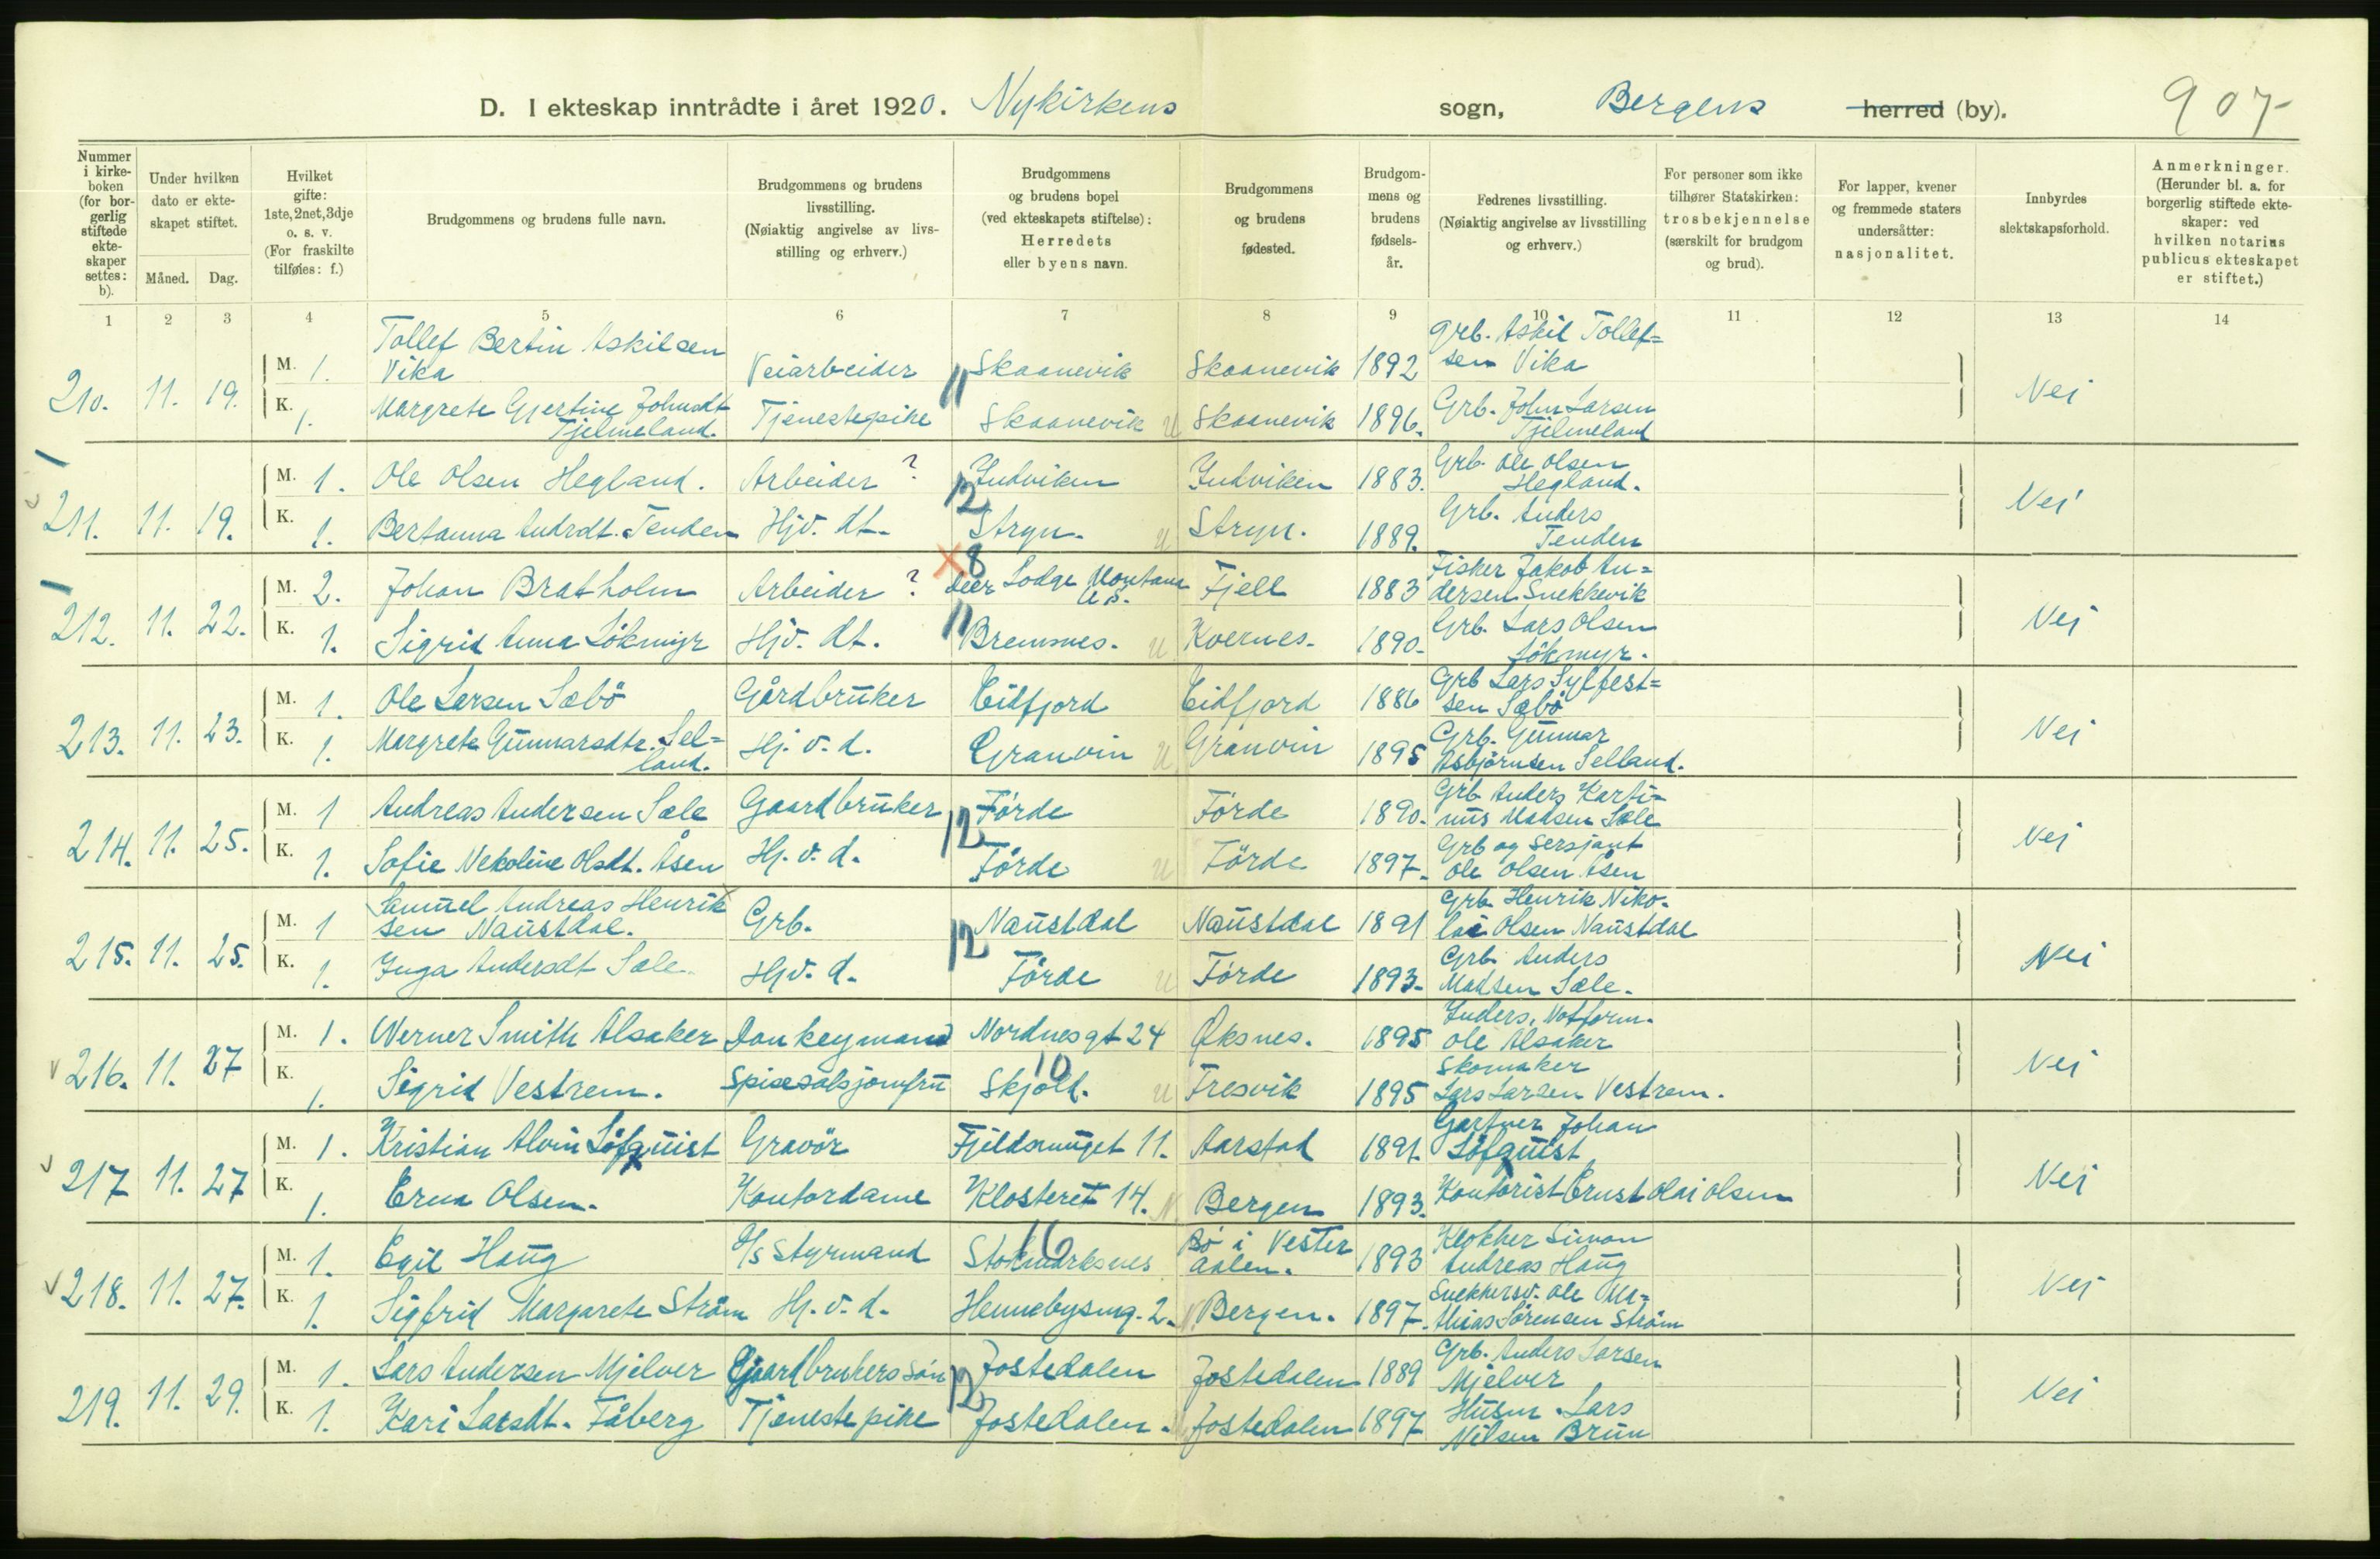 D. I ekteskap inntrådte i året 1920. Nykirkens sogn, Bergens herred (by). 907
Nummer i kirke-boken (for bor-gerlig stiftede ekte-skaper settes: b).
Under hvilken dato er ekte-skapet stiftet.
Måned. Dag.
Hvilket gifte: 1ste, 2net, 3dje o. s. v. (For fraskilte tilføies: f.)
Brudgommens og brudens fulle navn.
Brudgommens og brudens livsstilling. (Nøiaktig angivelse av livs-stilling og erhverv.)
Brudgommens og brudens bopel (ved ekteskapets stiftelse): Herredets eller byens navn.
Brudgommens og brudens fødested.
Brudgom-mens og brudens fødsels-år.
Fedrenes livsstilling. (Nøiaktig angivelse av livsstilling og erhverv.)
For personer som ikke tilhører Statskirken: trosbekjennelse (særskilt for brudgom og brud).
For lapper, kvener og fremmede staters undersåtter: nasjonalitet.
Innbyrdes slektskapsforhold.
Anmerkninger. (Herunder bl. a. for borgerlig stiftede ekte-skaper: ved hvilken notarius publicus ekteskapet er stiftet.)
1 2 3 4 5 6 7 8 9 10 11 12 13 14
210. 11. 19. M. 1. Tollef Bertin Askilsen Vika Veiarbeider 11 Skaanevik Skaanevik 1892 Grb. Askil Tollef=sen Vika Nei
K. 1. Margrete Gjertine Johnsdt Tjelmeland. Tjenestepike Skaanevik U Skaanevik 1896. Grb. John Larsen Tjelmeland
211. 11. 19. M. 1. Ole Olsen Hegland. Arbeider ? 12 Indviken Indviken 1883. Grb. Ole Olsen Hegland. Nei
K. 1. Bertanna Andrdt. Tenden Hjv. dt. Stryn. U Stryn. 1889. Grb. Anders Tenden
212. 11. 22. M. 2. Johan Bratholm Arbeider ? X 8 Deer Lodge Montana U.S. Fjell 1883 Fisker Jakob An=dersen Snekkevik Nei
K. 1. Sigrid Anna Lökmyr Hjv. dt. 11 Bremsnes. U Kvernes. 1890. Grb. Lars Olsen Lökmyr.
213. 11. 23. M. 1. Ole Larsen Sæbö Gårdbruker Eidfjord Eidfjord 1886 Grb Lars Sylfest=sen Sæbö Nei
K. 1. Margrete Gunnarsdtr. Sel=land. Hj. v. d. Granvin U Granvin 1895 Grb. Gunnar Asbjörnsen Selland.
214. 11. 25. M. 1 Andreas Andersen Sæle Gaardbruker 12 Förde Förde 1890. Grb Anders Karti=nus Madsen Sæle Nei
K. 1. Sofie Nekoline Olsdt. Åsen Hj. v. d. Förde U Förde 1897. Grb og Sersjant Ole Olsen Åsen
215. 11. 25. M. 1 Samuel Andreas Henrik sen Naustdal. Grb. 12 Naustdal Naustdal 1891 Grb. Henrik Niko-lai Olsen Naustdal Nei
K. 1. Inga Andersdt Sæle. Hjv. d. Förde U Förde 1893. Grb. Anders Madsen Sæle.
216. 11. 27 M. 1. Werner Smith Alsaker Donkeymand Nordnesgt 24 Öksnes. 1895 Ole Alsaker Nei
K. 1. Sigrid Vestrem. Spisesalsjomfru 10 Skjold. U Fresvik 1895 Skomaker Lars Larsen Vestrem.
217 11. 27 M. 1. Kristian Alvin Löfquist Gravör Fjeldsmuget 11. Aarstad 1891. Gartner Johan Löfquist Nei
K. 1. Erna Olsen. Kontordame Klosteret 14. N Bergen 1893. Kontorist Ernst Olai Olsen
218. 11. 27. M. 1. Egil Haug Styrmand 16 Stokmarksnes Bö i Vester aalen. 1893 Klokker Simon Andreas Haug Nei
K. 1. Sigfrid Margarete Ström Hj. v. d. Hennebysmg. 2. N. Bergen. 1897. Snekkersv. Ole Ma=thias Sörensen Ström
219. 11. 29. M. 1. Lars Andersen Mjelver Gaardbrukers sön 12 Jostedalen Jostedalen 1889 Grb. Anders Larsen Mjelver Nei
K. 1. Kari Larsdt. Fåberg Tjenestepike Jostedalen. Jostedalen 1897 Husm. Lars Nilsen Brun